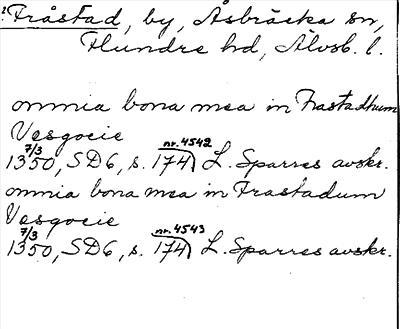 Fråstad, by, Åsbräcka sn,
Flundre hd, Älvsb. l.
omnia bona mea in Frastadhum
Vesgocie
7/3 1350, SD6, s. 174, nr. 4542 L. Sparres avskr.
omnia bona mea in Frastadum
Vesgocie
7/3 1350, SD6, s. 174, nr. 4543 L. Sparres avskr.